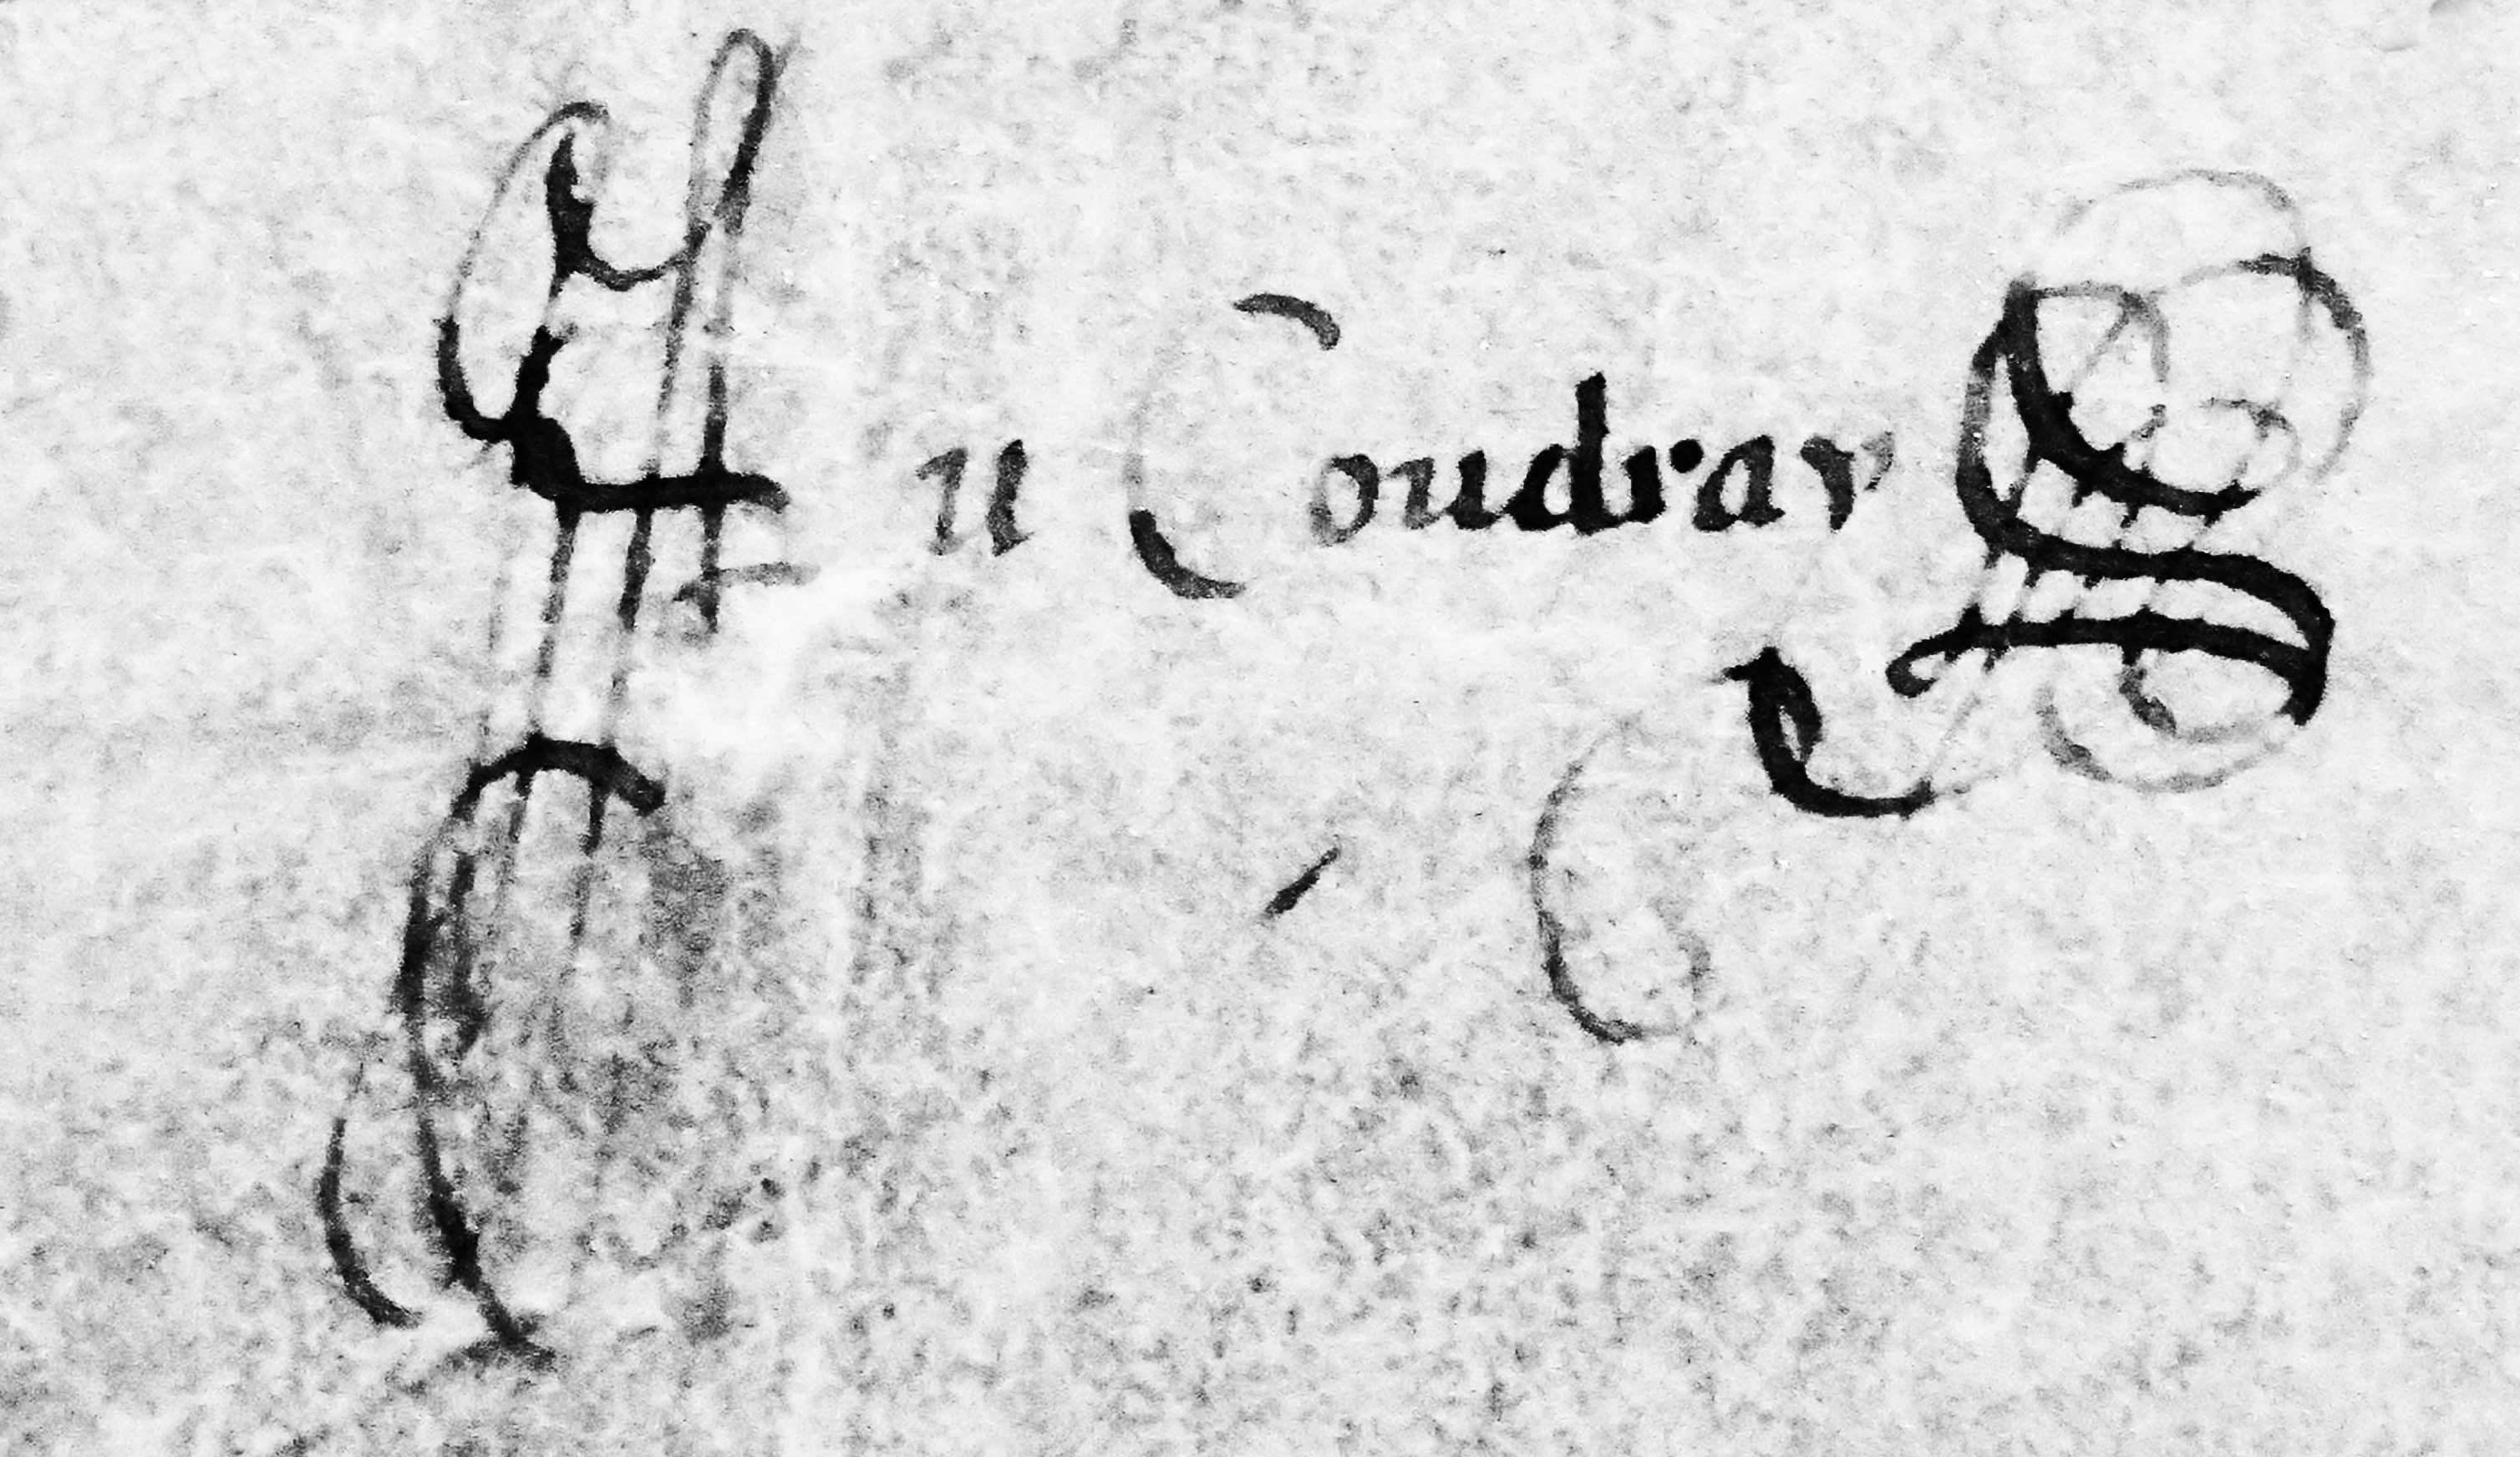 Du Coudray